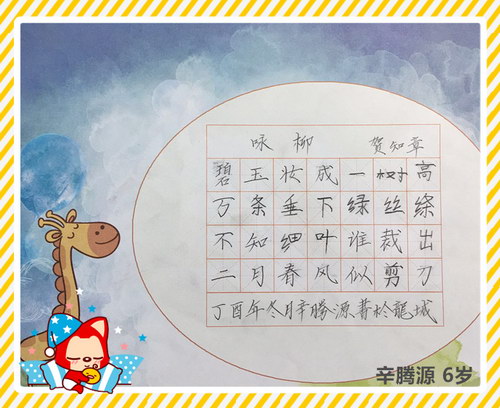 咏柳 賀知章
碧玉妆成一树高
万条垂下绿丝绦
不知细叶谁裁出
二月春风似剪刀
丁酉年冬月辛腾源書於龍城
辛腾源 6岁